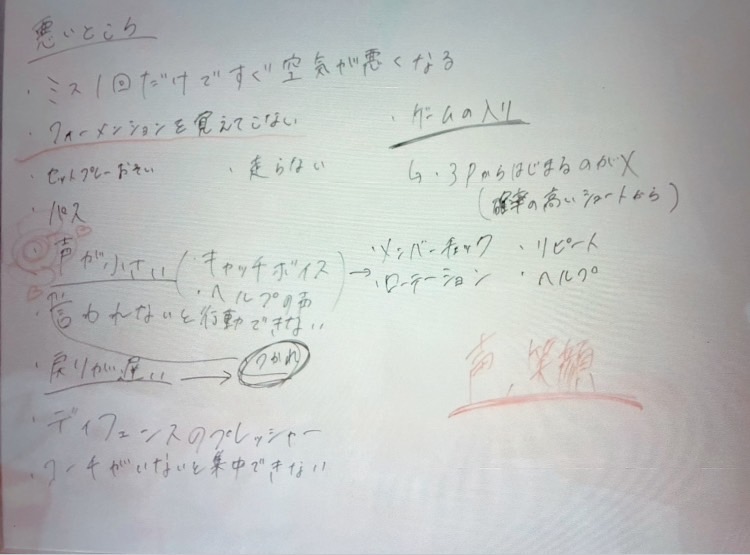 悪いところ
・ミス1回だけですぐ空気が悪くなる
・フォーメンションを覚えてこない
・セットプレーおそい ・走らない
・パス
・声が小さい (・キャッチボイス ・ヘルプの声) → ・メンバーチェック ・リピート
・ローテーション ・ヘルプ
・言われないと行動できない
・戻りが遅い → つかれ
・ディフェンスのプレッシャー
・コーチがいないと集中できない
・ゲームの入り
↳・3Pからはじまるのが×
(確率の高いシュートから)
声、笑顔